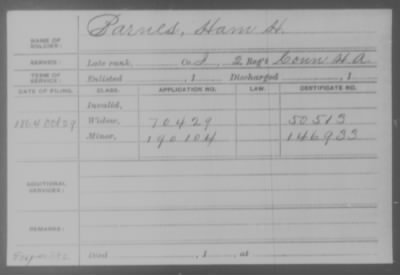 NAME OF SOLDIER: Barnes, Ham H.
SERVICE: Late rank, Co. I, 2 Reg't Conn H. A.
TERM OF SERVICE: Enlisted , 1 Discharged , 1
DATE OF FILING. CLASS. APPLICATION NO. LAW. CERTIFICATE NO.
Invalid,
1864 Oct 29 Widow, 70429 50513
Minor, 190104 146933
ADDITIONAL SERVICES:
REMARKS:
Died , 1 , at